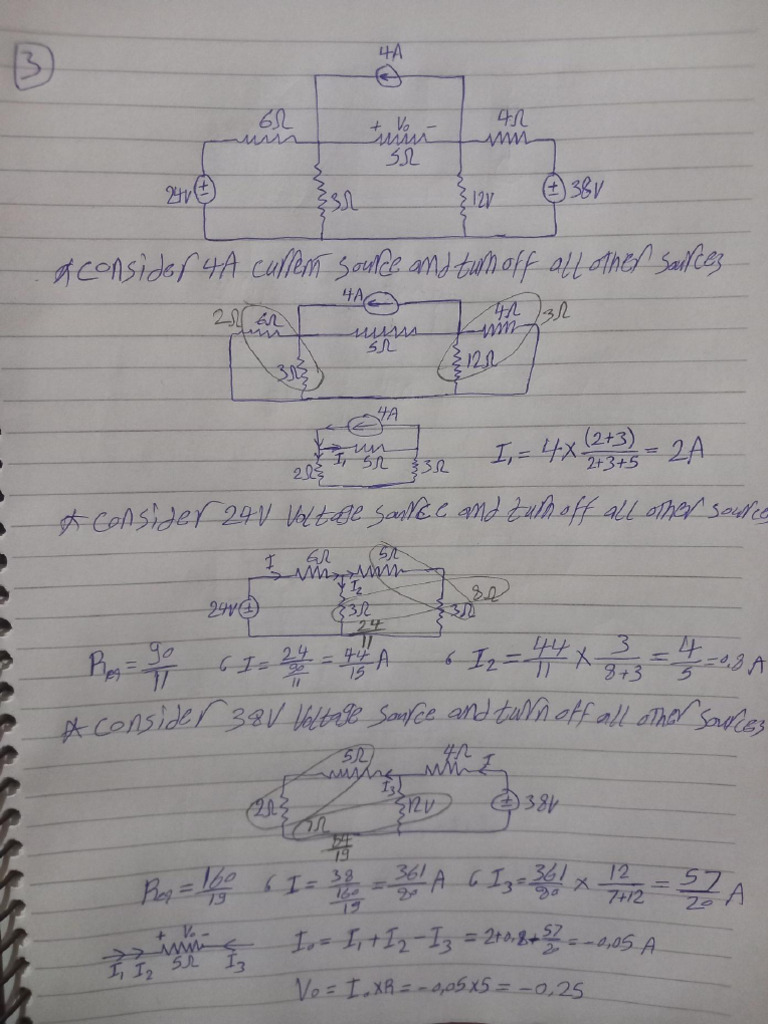 3
4A
6Ω + Vo - 4Ω
5Ω
24V 3Ω 12V 38V
* consider 4A current source and turn off all other sources
4A
2Ω 6Ω 4Ω 3Ω
5Ω
3Ω 12Ω
4A
I₁ 5Ω
2Ω 3Ω
I₁ = 4 × (2+3)/(2+3+5) = 2A
* consider 24V Voltage source and turn off all other sources
I 6Ω 5Ω
I₂ 8Ω
24V 3Ω 3Ω
24/11
Req = 90/11 6 I = 24/(90/11) = 44/15 A 6 I₂ = 44/11 × 3/(8+3) = 4/5 = 0.8 A
* consider 38V Voltage source and turn off all other sources
5Ω 4Ω I
I₃
2Ω 12V 38V
7Ω
84/19
Req = 160/19 6 I = 38/(160/19) = 361/80 A 6 I₃ = 361/80 × 12/(7+12) = 57/20 A
+ Vo -
I₁ I₂ 5Ω I₃
I₀ = I₁ + I₂ - I₃ = 2+0.8+57/2 = -0,05 A
Vo = I₀ × R = -0,05 × 5 = -0,25